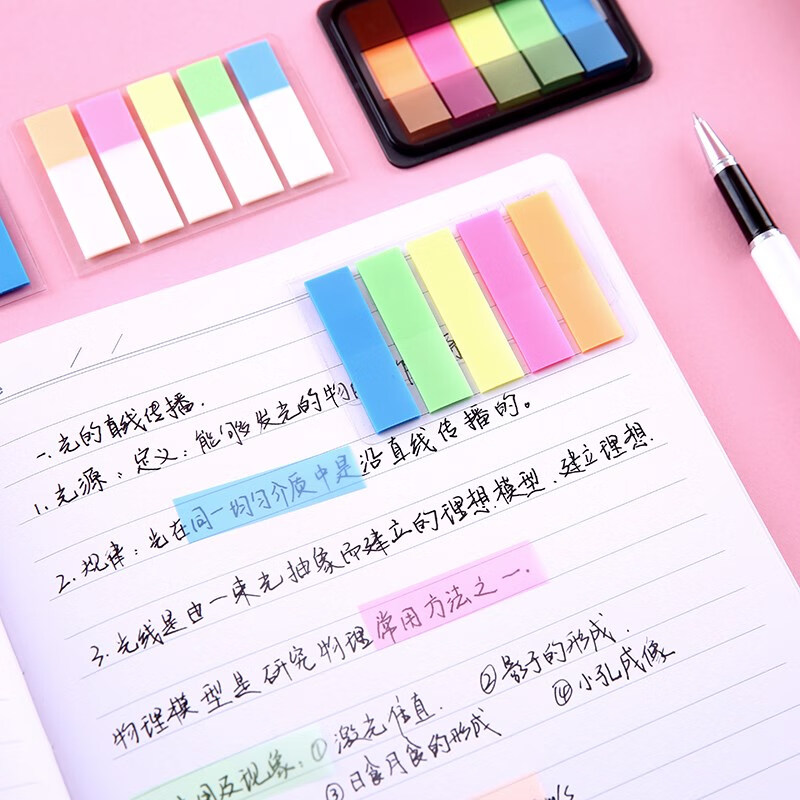 一.光的直线传播.
1.光源:定义:能够发光的物
2.规律:光在同一均匀介质中是沿直线传播的。
3.光线是由一束光抽象而建立的理想模型.建立理想.
物理模型是研究物理常用方法之一.
用及现象:①激光准直. ②影子的形成.
③日食月食的形成 ④小孔成像